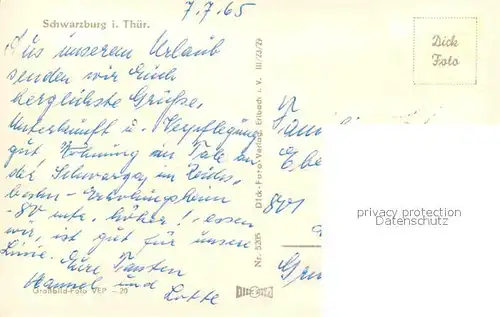 7.7.65
Schwarzburg i. Thür.
Aus unserem Urlaub
senden wir Euch
herzlichste Grüße.
Unterkunft u. Verpflegung
gut, Wohnung im Tale an
der Schwarza, im Reichs-
bahn-Erholungsheim
höher! essen
wir, ist gut für unsere
Linie. Eure Tanten
Hannel und
Lotte
Großbild-Foto VEP – 20
Dick-Foto-Verlag, Erlbach i. V. III/23/29
Nr. 5205
Dick
Foto
Fami
801
privacy protection
www.ansichtskarten-center.de